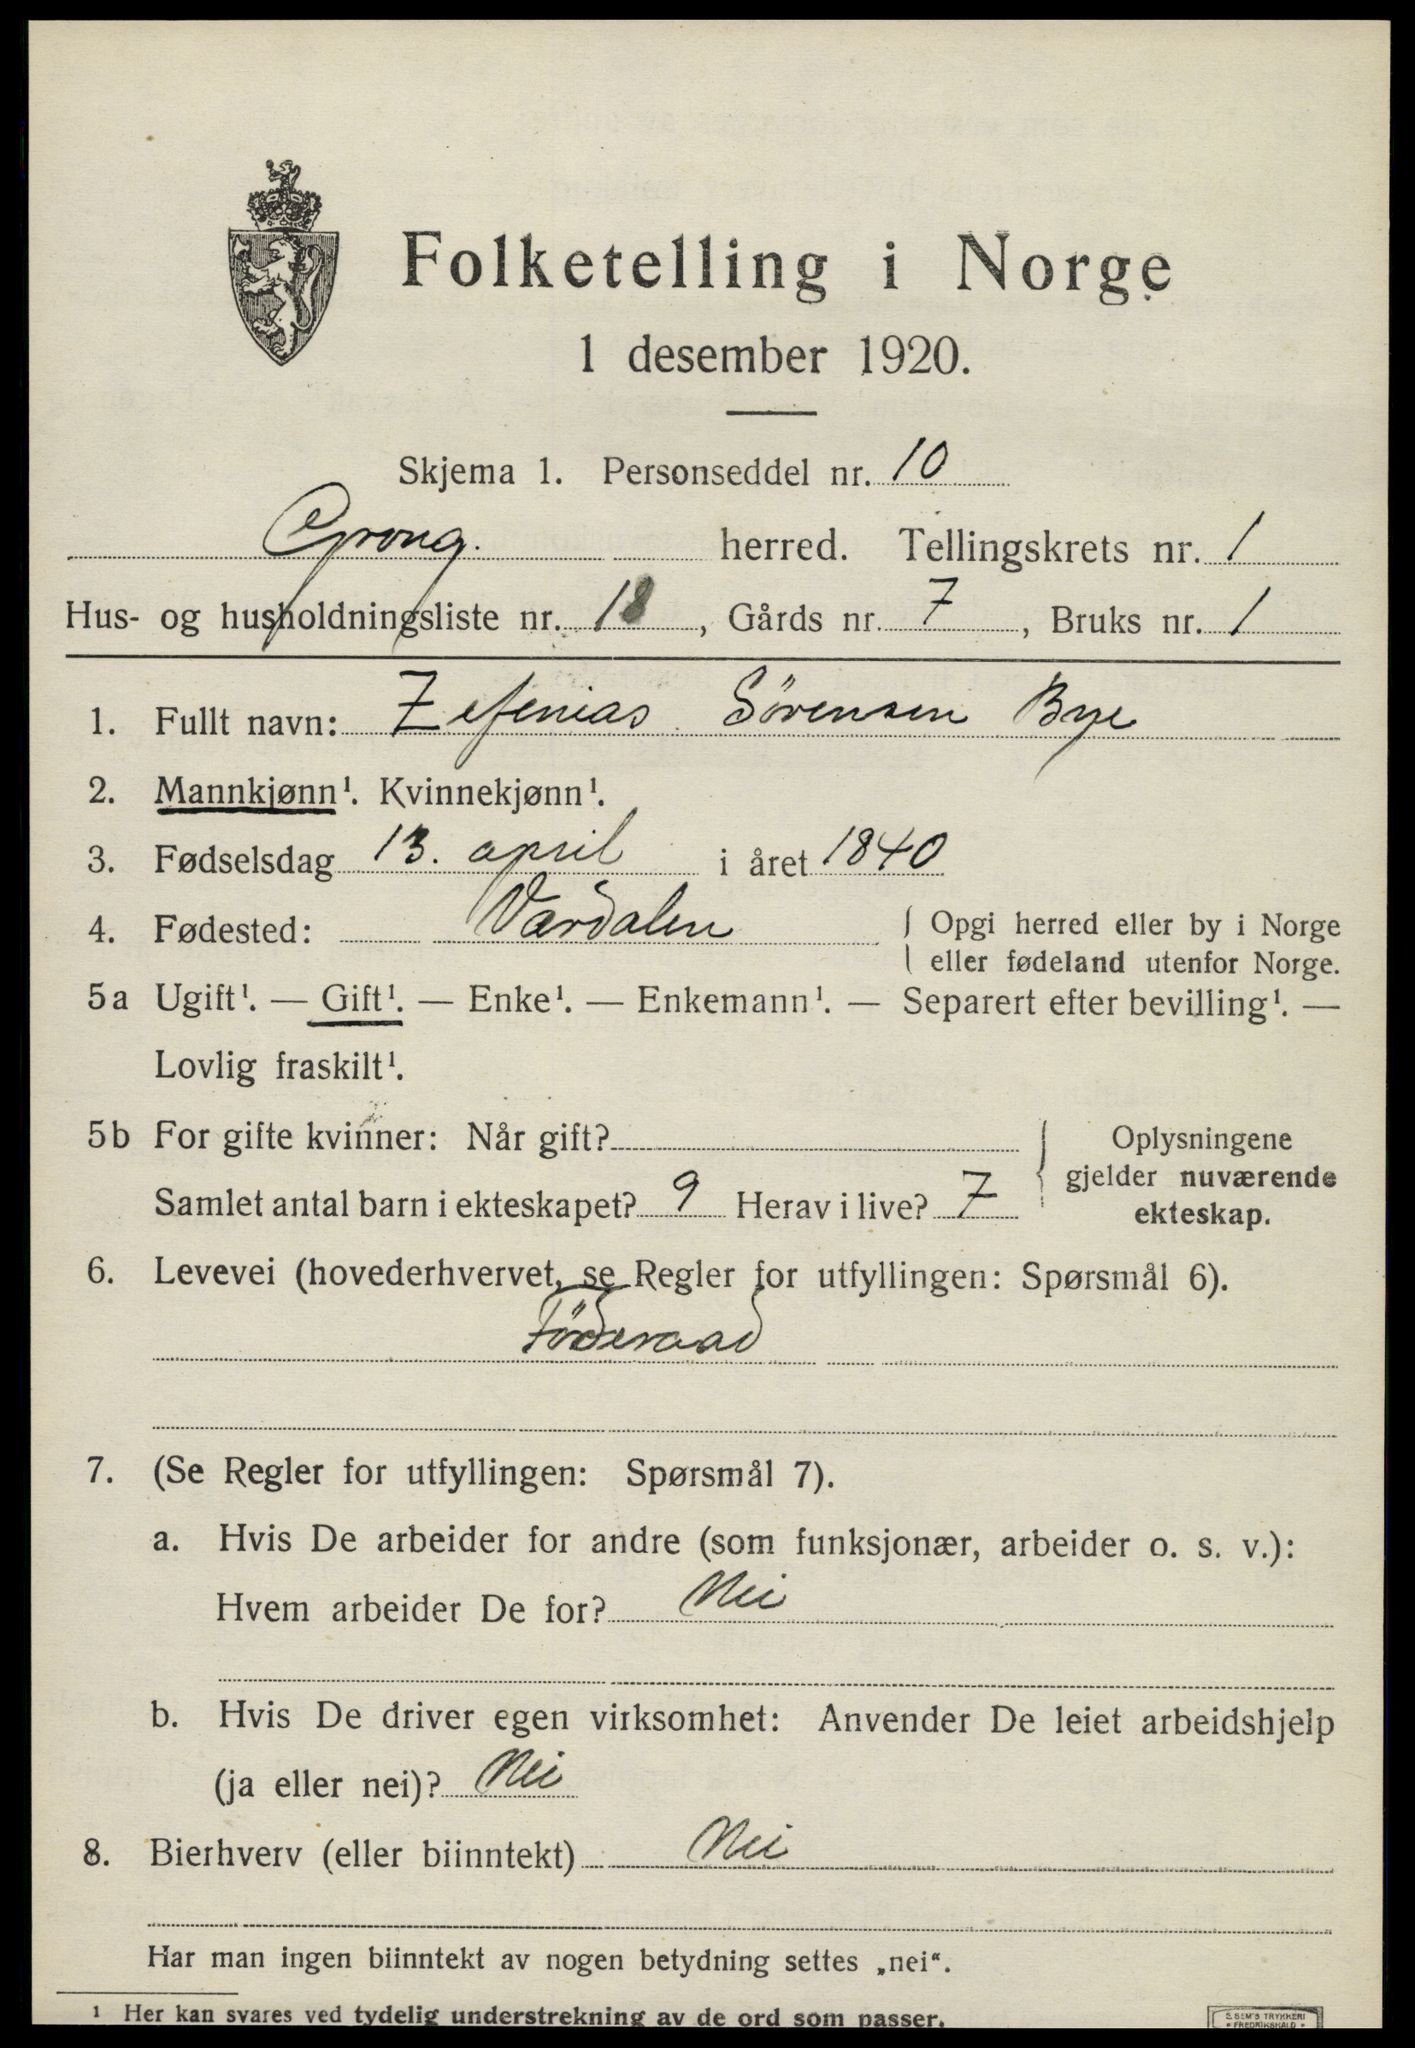 Folketelling i Norge
1 desember 1920.
Skjema 1. Personseddel nr. 10
Grong. herred. Tellingskrets nr. 1
Hus- og husholdningsliste nr. 18, Gårds nr. 7, Bruks nr. 1
1. Fullt navn: Zefenias Sörensen Bye
2. Mannkjønn¹. Kvinnekjønn¹.
3. Fødselsdag 13. april i året 1840
4. Fødested: Værdalen { Opgi herred eller by i Norge
eller fødeland utenfor Norge.
5a Ugift¹. — Gift¹. — Enke¹. — Enkemann¹. — Separert efter bevilling¹. —
Lovlig fraskilt¹.
5b For gifte kvinner: Når gift? { Oplysningene
gjelder nuværende
Samlet antal barn i ekteskapet? 9 Herav i live? 7 ekteskap.
6. Levevei (hovederhvervet, se Regler for utfyllingen: Spørsmål 6).
Föderaad
7. (Se Regler for utfyllingen: Spørsmål 7).
a. Hvis De arbeider for andre (som funksjonær, arbeider o. s. v.):
Hvem arbeider De for? Nei
b. Hvis De driver egen virksomhet: Anvender De leiet arbeidshjelp
(ja eller nei)? Nei
8. Bierhverv (eller biinntekt) Nei
Har man ingen biinntekt av nogen betydning settes „nei“.
¹ Her kan svares ved tydelig understrekning av de ord som passer.
S. SEM'S TRYKKERI
• FREDRIKSHALD •